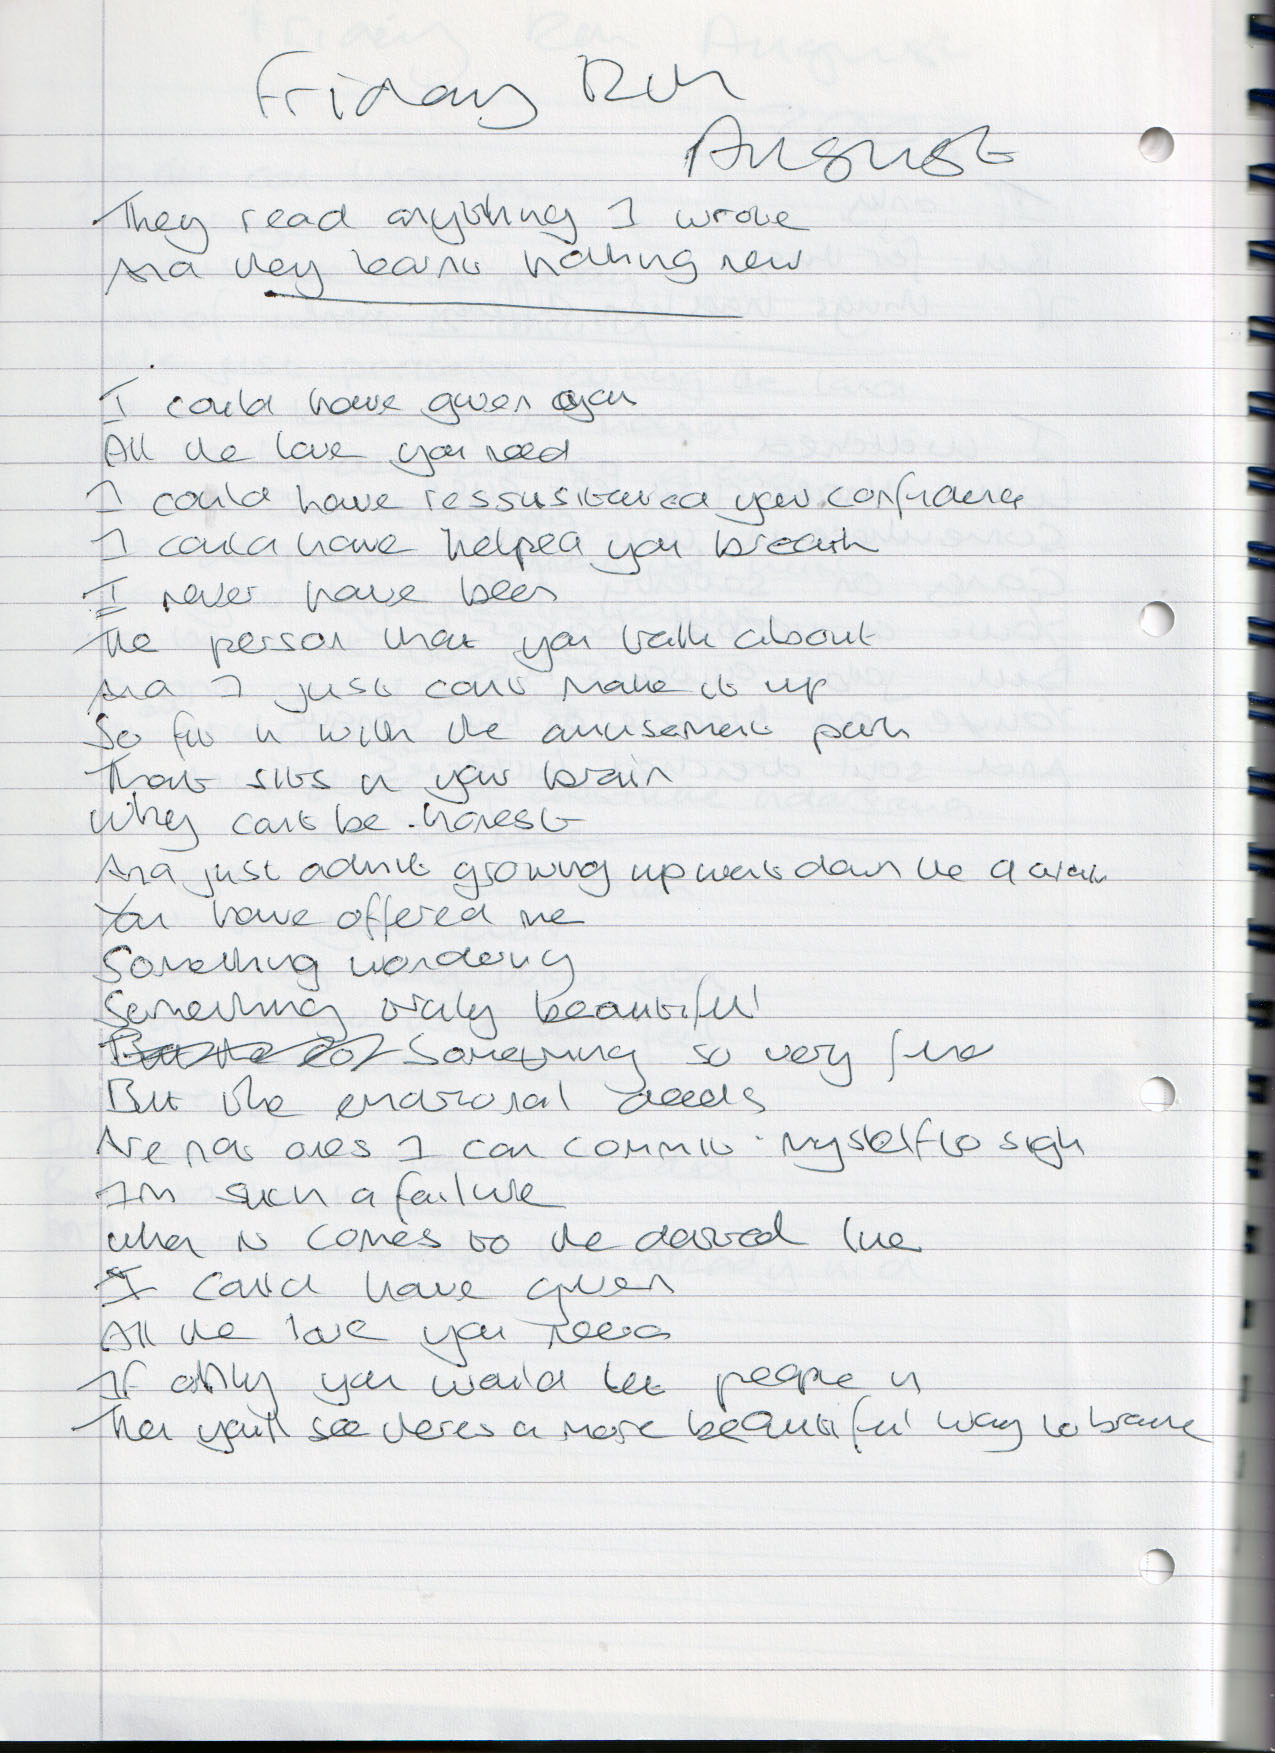 Friday
August
They read anything I wrote
And they learnt nothing new
I could have given you
All the love you need
I could have ressusitated your confidence
I could have helped you breath
I never have been
The person that you talk about
And I just cant make it up
So fit in with the amusement park
That sits in your brain
Why cant be honest
And just admit growing up went down the drain
You have offered me
Something
Something truly beautiful
Something so very fine
But the emotional needs
Are not ones I can commit myself to sign
Im such a failure
When it comes to the dotted line
I could have given
All the love you need
If only you would let people in
Then you'll see theres a more beautiful way to